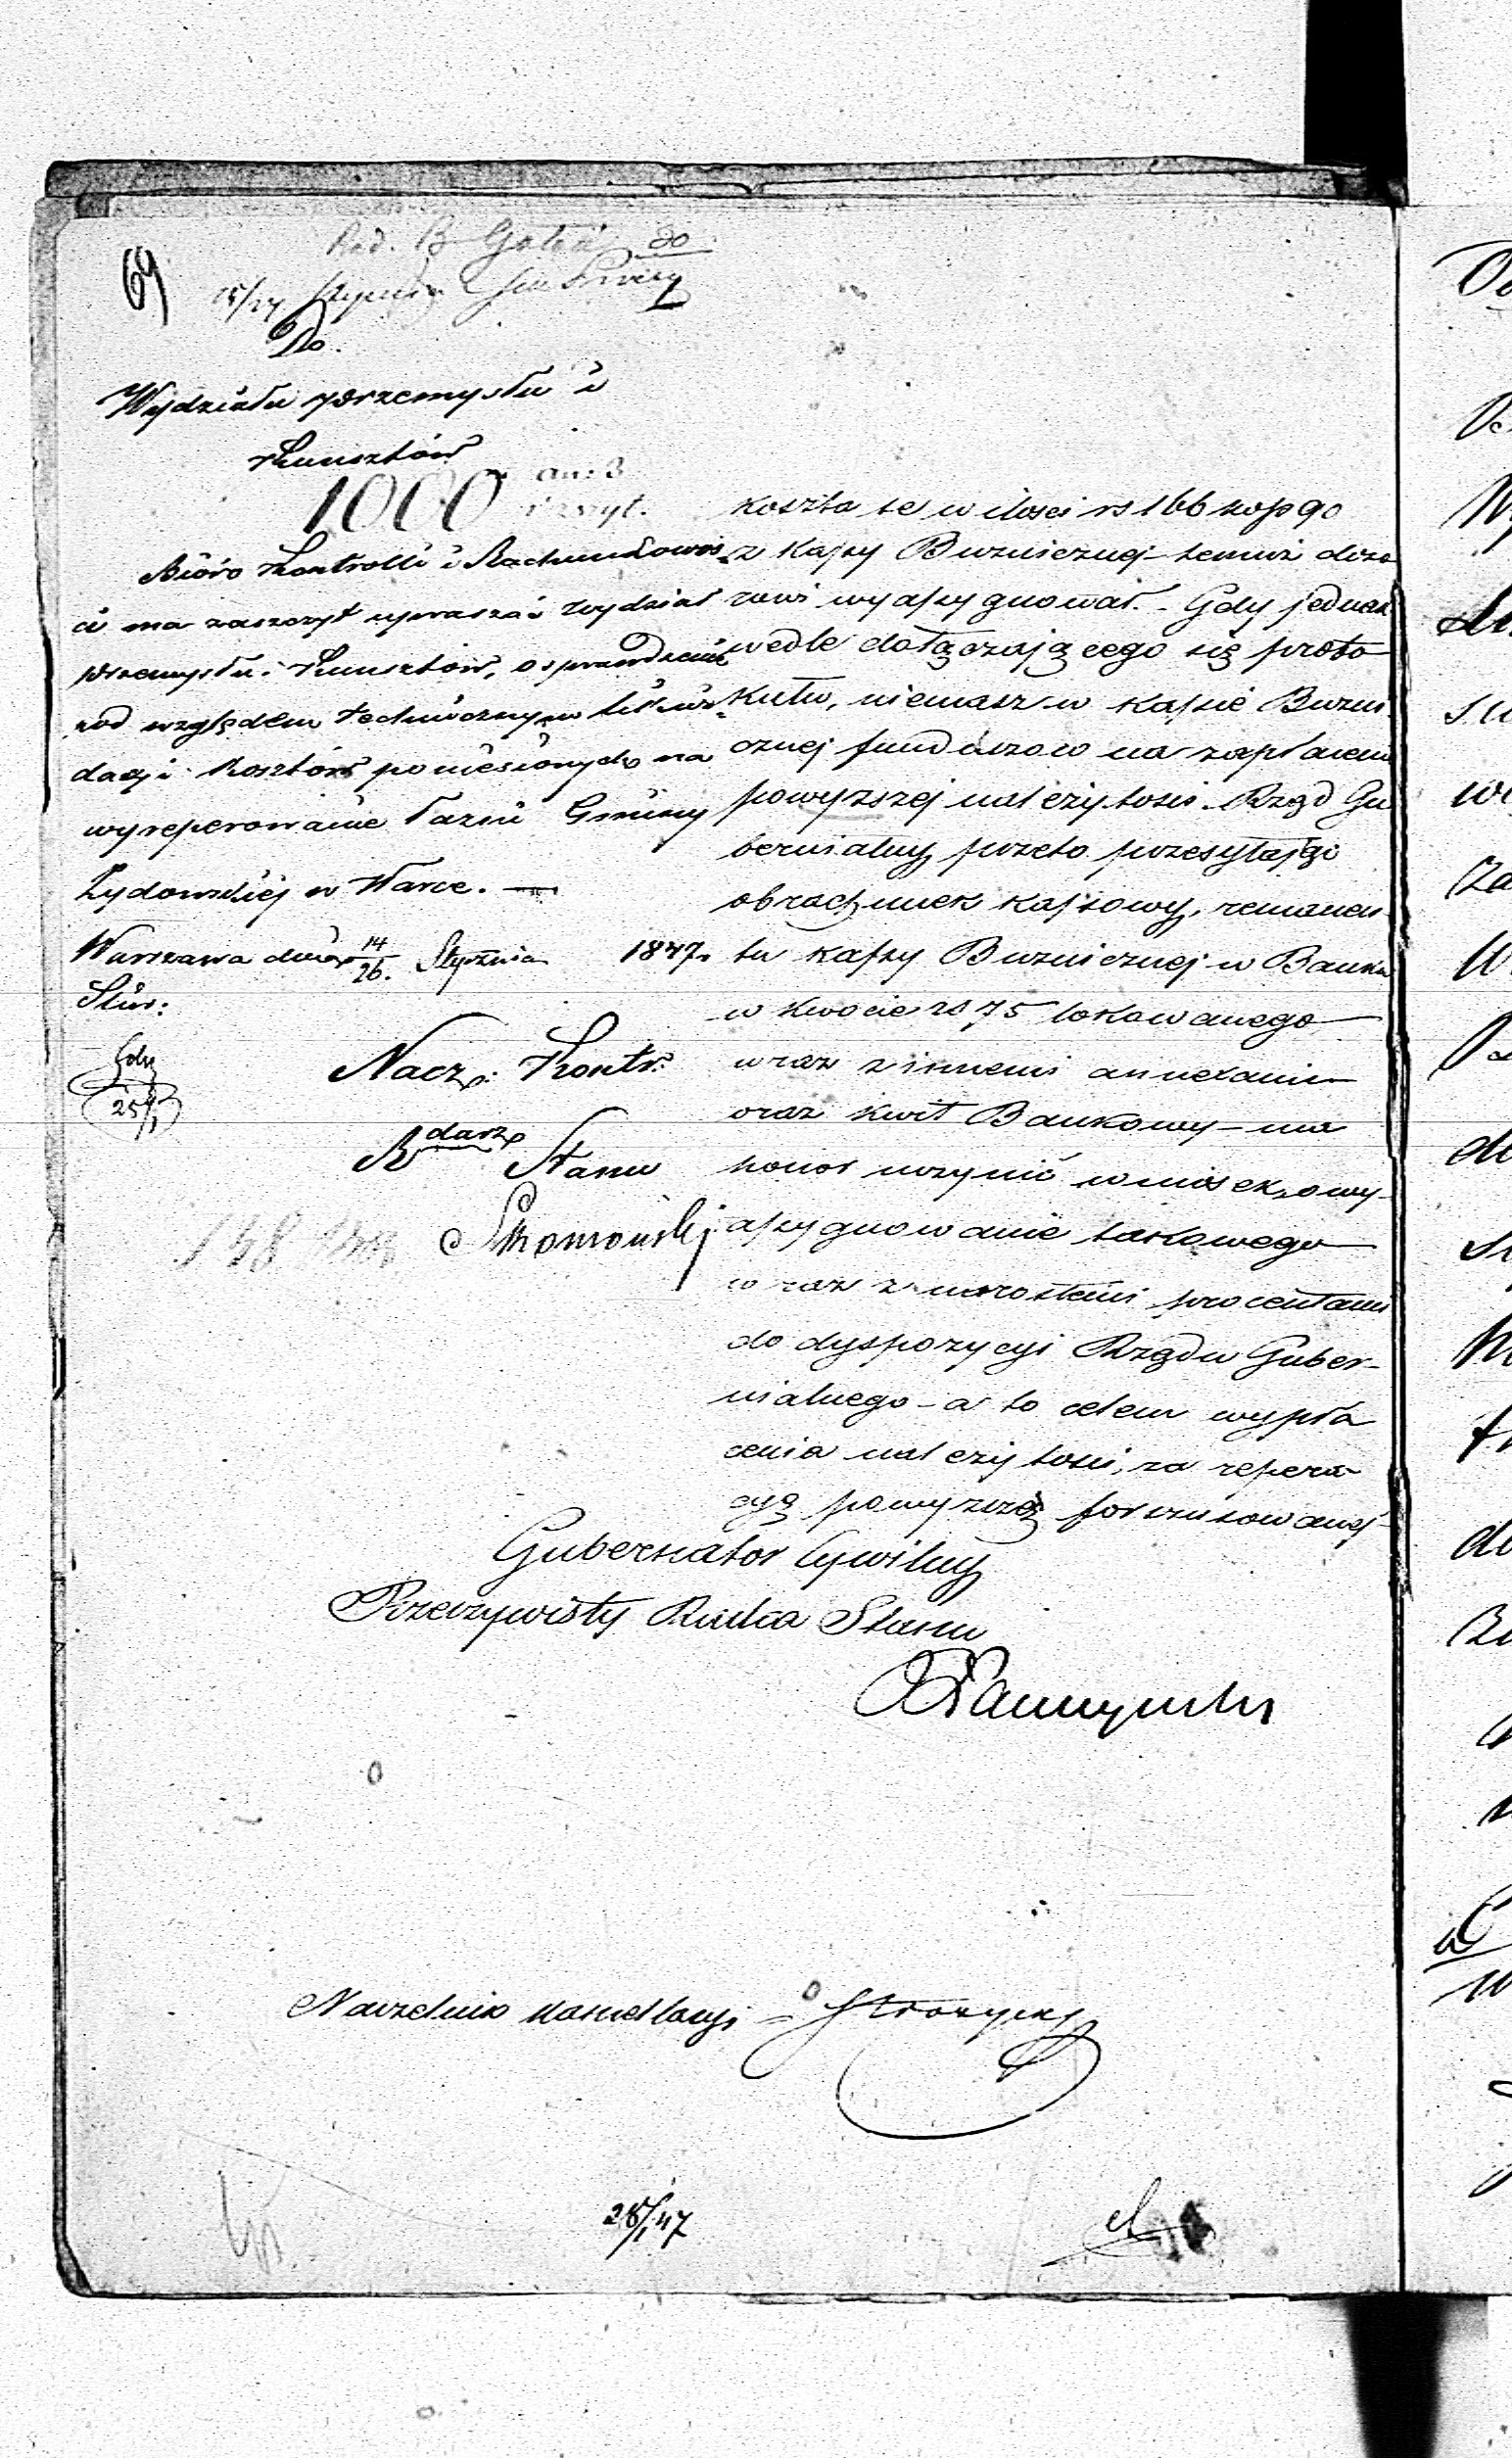 69
Rad. B
do
Do
Wydziału Przemysłu i
Kunsztów
1000
Bióro Kontrolli i Rachunkowoś
ci ma zaszczyt upraszać Wydział
Przemysłu i Kunsztów, o sprawdzenie
pod względem technicznym likwi
dacyi kosztów poniesionych na
wyreperowanie Łazni Gminy
Żydowskiej w Warce. —
Warszawa dnia 14/26 Stycznia 1847.
Nacz: Kontr:
R darz Stanu
koszta te w ilości rs 166 kop 90
z kassy Bużnicznej temuż dozo
rowi wyassygnował. - Gdy jednak
wedle dołączającego się proto
kułu, niemasz w kassie Bużni
cznej funduszow na zapłacenie
powyższej należytości. Rząd Gu
bernialny przeto przesyłając
obrachunek kassowy, remanen
tu kassy Bużnicznej w Banku
w kwocie rs 75 lokowanego
wraz z innemi annexami
oraz kwit Bankowy - ma
honor uczynić wniosek, o wy-
assygnowanie takowego
wraz z narosłemi procentami
do dyspozycyi Rządu Guber-
nialnego - a to celem wypła
cenia należytości, za repera-
cyą powyższą forszusowanej
Gubernator Cywilny
Rzeczywisty Radca Stanu
Naczelnik Kancellaryi
28/1 47